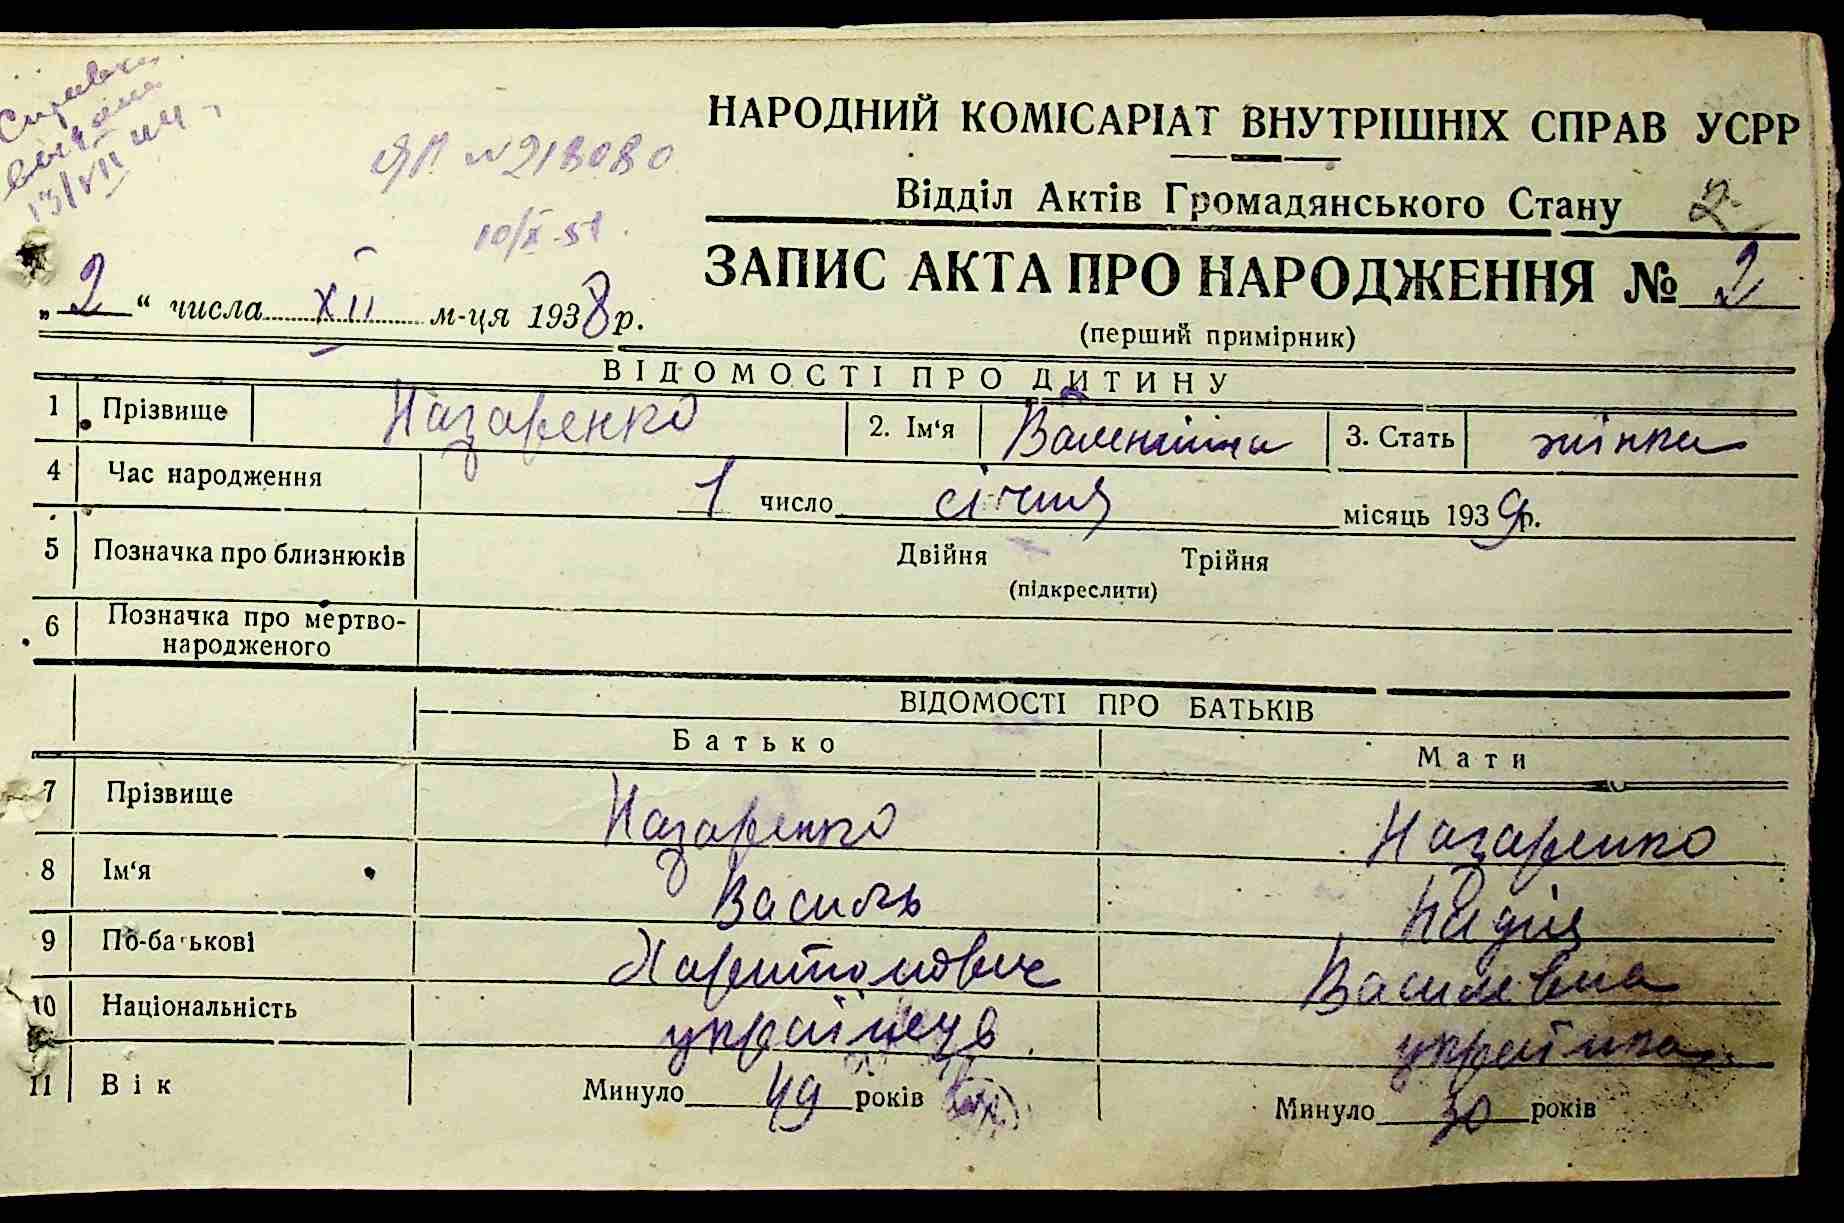 Справка
выдана
13/VII 44
ЯП №218080
10/X-51.
НАРОДНИЙ КОМІСАРІАТ ВНУТРІШНІХ СПРАВ УСРР
Відділ Актів Громадянського Стану 2
ЗАПИС АКТА ПРО НАРОДЖЕННЯ № 2
„2“ числа XII м-ця 1938р.
(перший примірник)
ВІДОМОСТІ ПРО ДИТИНУ
1 Прізвище Назаренко 2. Ім‘я Валентіна 3. Стать жінка
4 Час народження 1 число січня місяць 1939р.
5 Позначка про близнюків Двійня Трійня
(підкреслити)
6 Позначка про мертво-
народженого
ВІДОМОСТІ ПРО БАТЬКІВ
Батько Мати
7 Прізвище Назаренко Назаренко
8 Ім‘я Василь Надія
9 По-батькові Харитонович Василевна
10 Національність українець українка
11 Вік Минуло 49 років Минуло 30 років